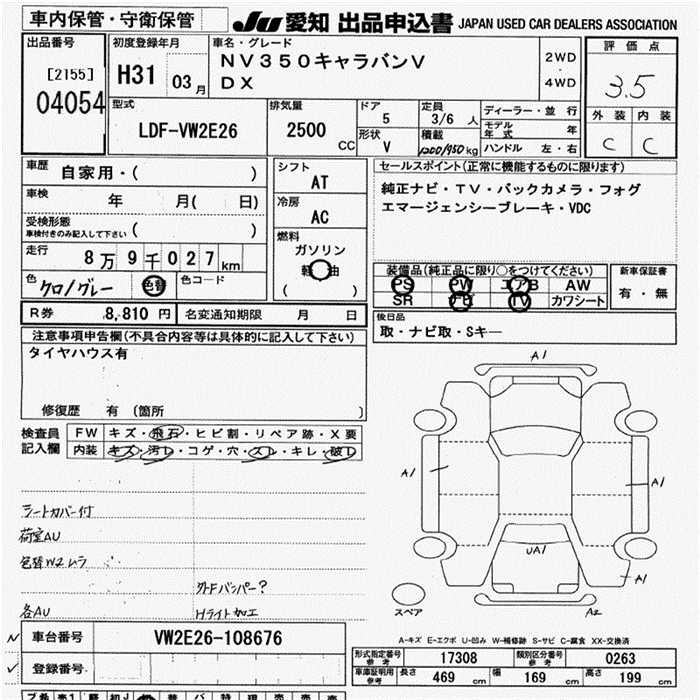 車内保管・守衛保管
JU 愛知 出品申込書 JAPAN USED CAR DEALERS ASSOCIATION
出品番号
[2155]
04054
初度登録年月
H31 03月
車名・グレード
NV350キャラバンV
DX
2WD
・
4WD
評価点
3.5
外装 内装
C C
型式
LDF-VW2E26
排気量
2500 CC
ドア
5
形状
V
定員
3/6 人
積載
1200/950kg
ディーラー・並行
モデル年式 年
ハンドル 左・右
車歴 自家用・( )
車検 年 月( 日)
受検形態
車検付きのみ記入して下さい ( )
走行 8万9千027km
色 クロ/グレー 色替 色コード
シフト
AT
冷房
AC
燃料
ガソリン
軽油
( )
セールスポイント(正常に機能するものに限ります)
純正ナビ・TV・バックカメラ・フォグ
エマージェンシーブレーキ・VDC
装備品(純正品に限り○をつけてください)
PS PW エアB AW
SR ナビ TV カワシート
新車保証書
有・無
後日品
取・ナビ取・Sキー
R券 8,810 円 名変通知期限 月 日
注意事項申告欄(不具合内容等は具体的に記入して下さい)
タイヤハウス有
修復歴 有 (箇所 )
検査員記入欄
FW キズ・飛石・ヒビ割・リペア跡・X要
内装 キズ・汚レ・コゲ・穴・スレ・キレ・破レ
シートカバー付
荷室AU
色替W2ムラ
外Fバンパー?
各AU Hライト加工
A1
A1
A1
UA1
A1
A2
スペア
A-キズ E-エクボ U-凹み W-補修跡 S-サビ C-腐食 XX-交換済
車台番号 VW2E26-108676
登録番号
形式指定番号 参考 17308 類別区分番号 参考 0263
車庫証明用 参考 長さ 469 cm 幅 169 cm 高さ 199 cm